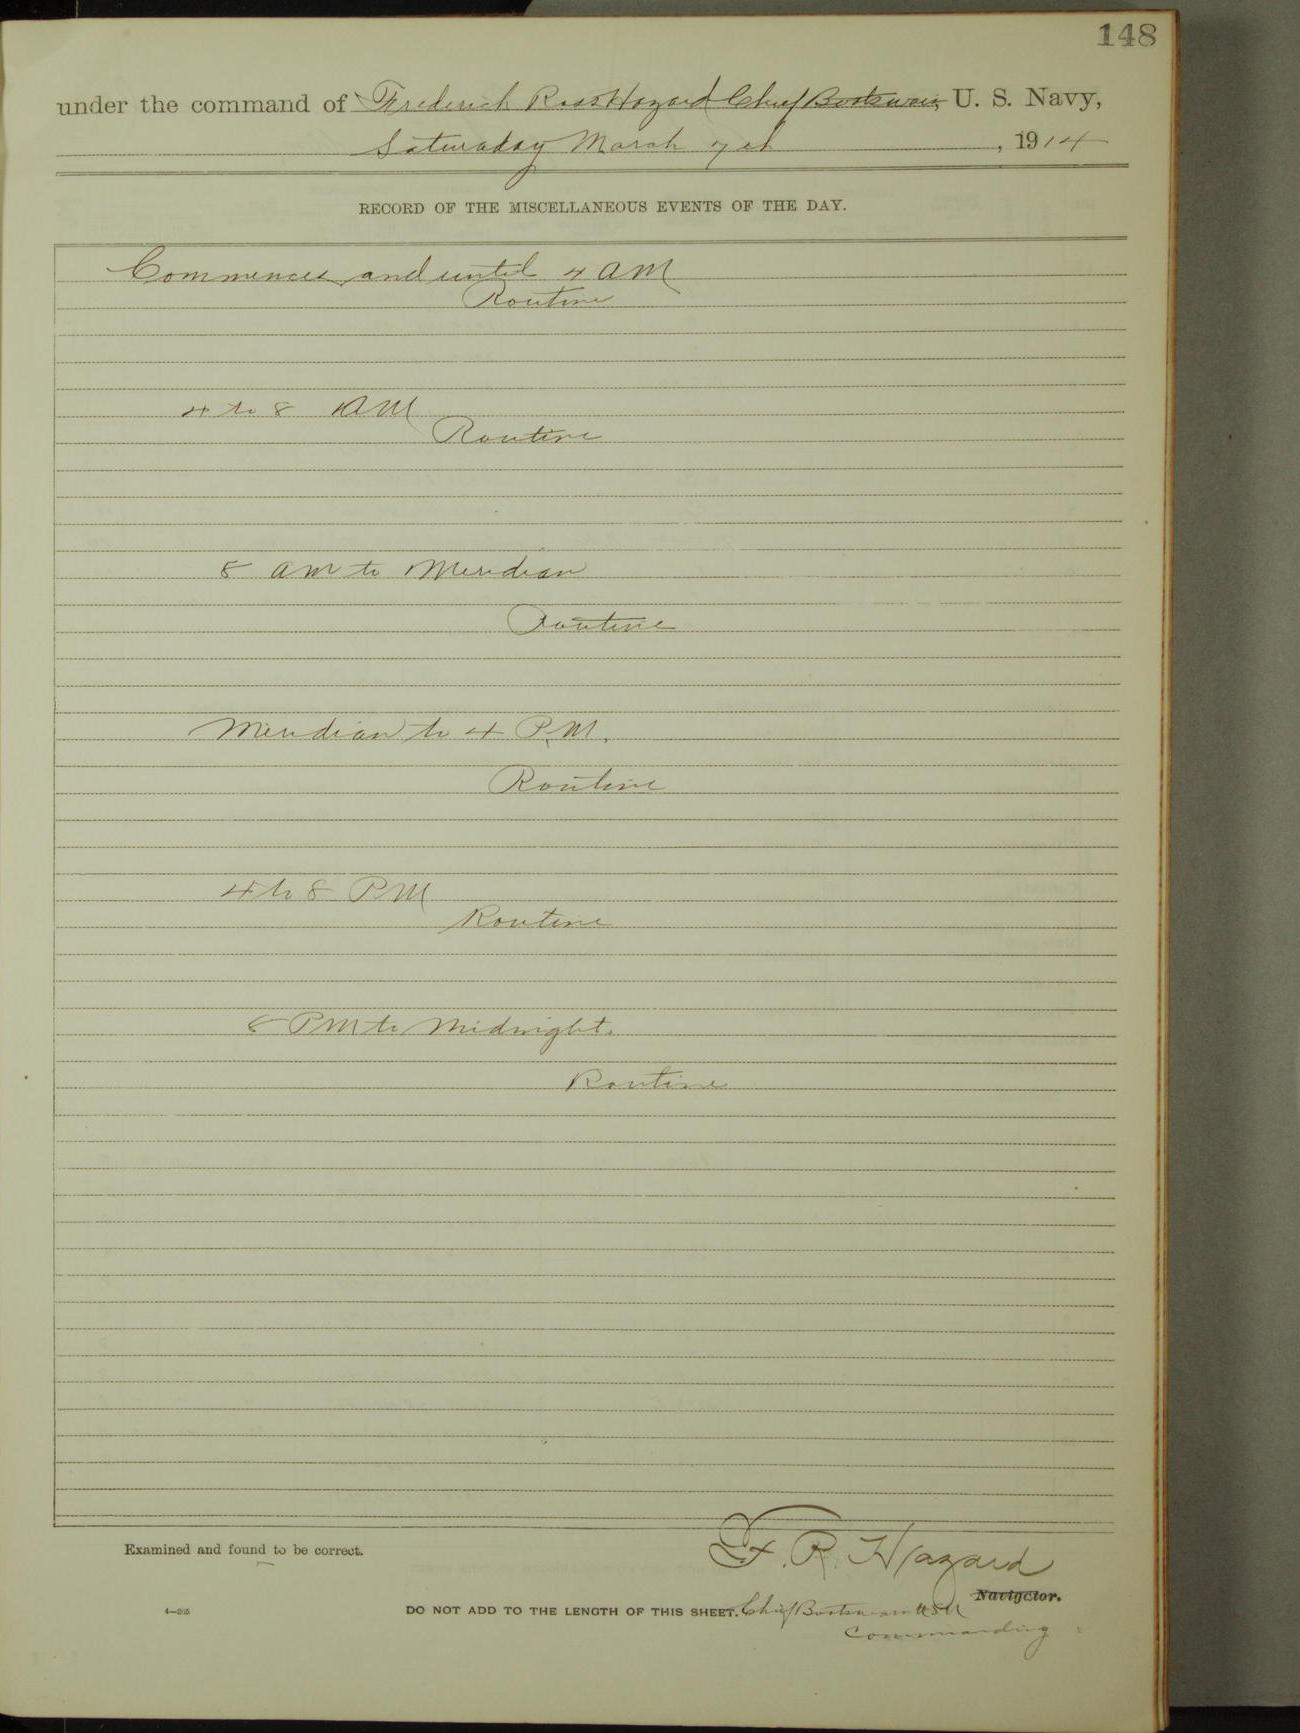 148
under the command of Frederick Ross Hazard Chief Boatswain, U. S. Navy,
Saturday March 7th, 1914
RECORD OF THE MISCELLANEOUS EVENTS OF THE DAY.
Commences and until 4 AM
Routine
4 to 8 AM
Routine
8 AM to Meridian
Routine
Meridian to 4 P.M.
Routine
4 to 8 PM
Routine
8 PM to Midnight.
Routine
F. R. Hazard
Examined and found to be correct.
Navigator.
4—205
DO NOT ADD TO THE LENGTH OF THIS SHEET. Chief Boatswain USN
Commanding